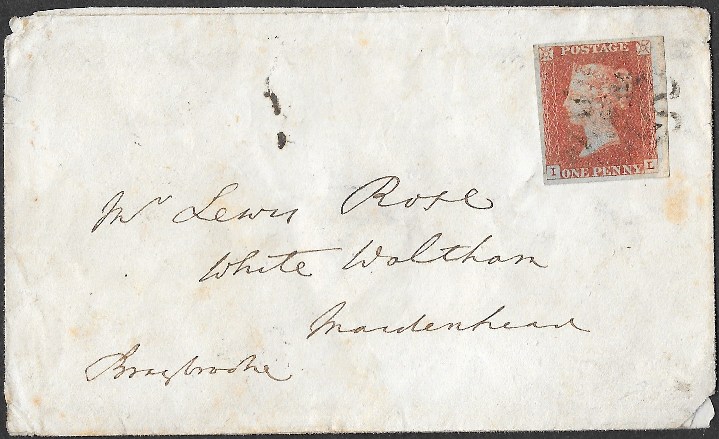 POSTAGE
I L
ONE PENNY
Mr Lewis Rose
White Waltham
Maidenhead
Braybrooke